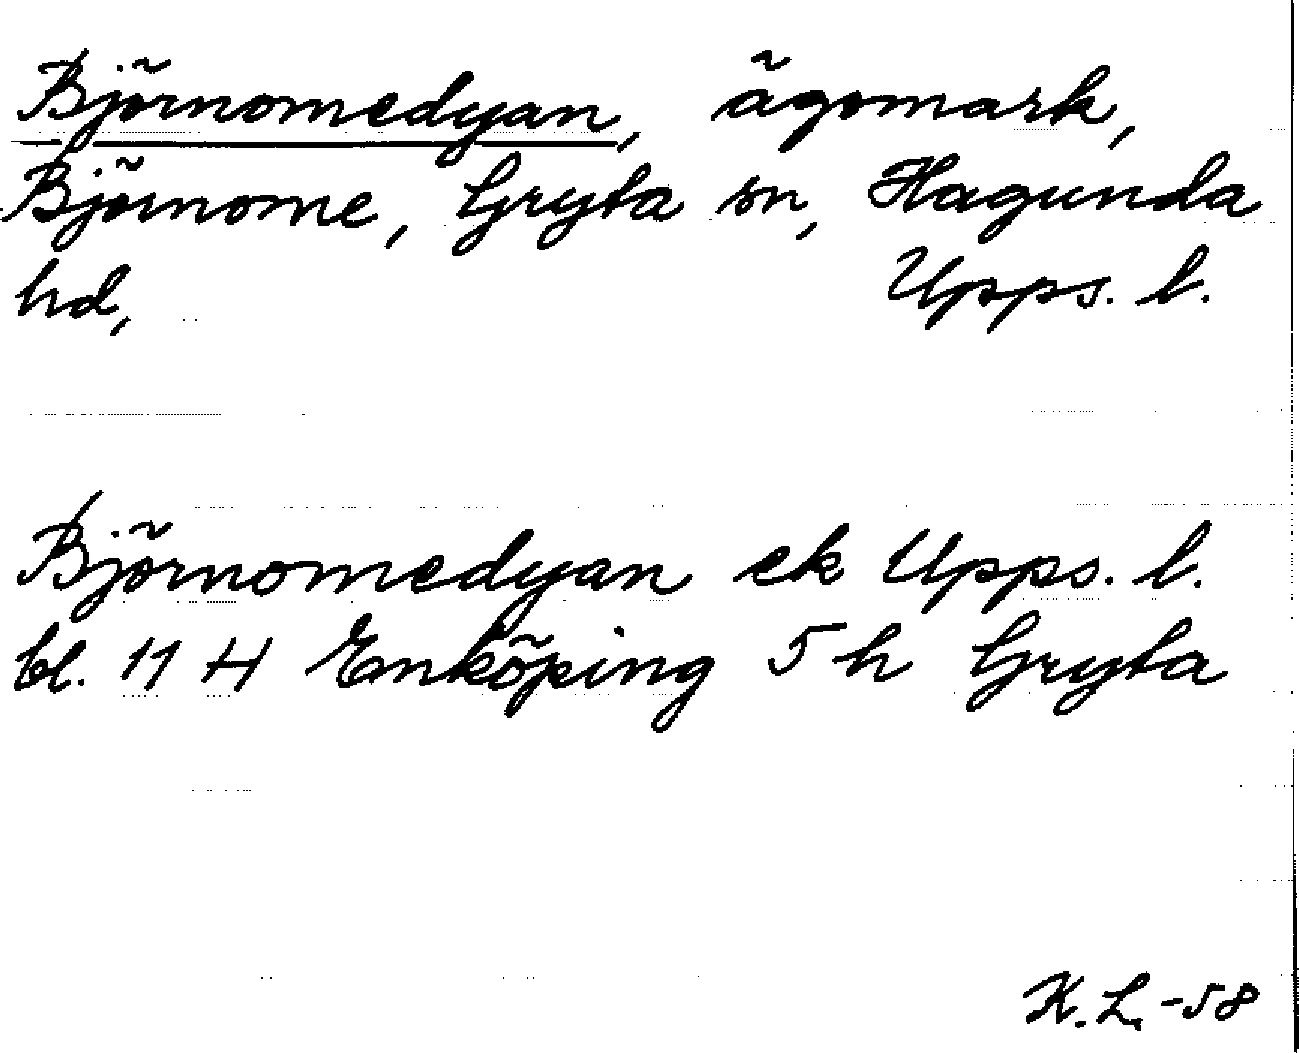 Björnomedyan, ägomark,
Björnome, Gryta sn, Hagunda
hd, Upps. l.
Björnomedyan ek Upps. l.
bl. 11 H Enköping 5 h Gryta
K. L. -58